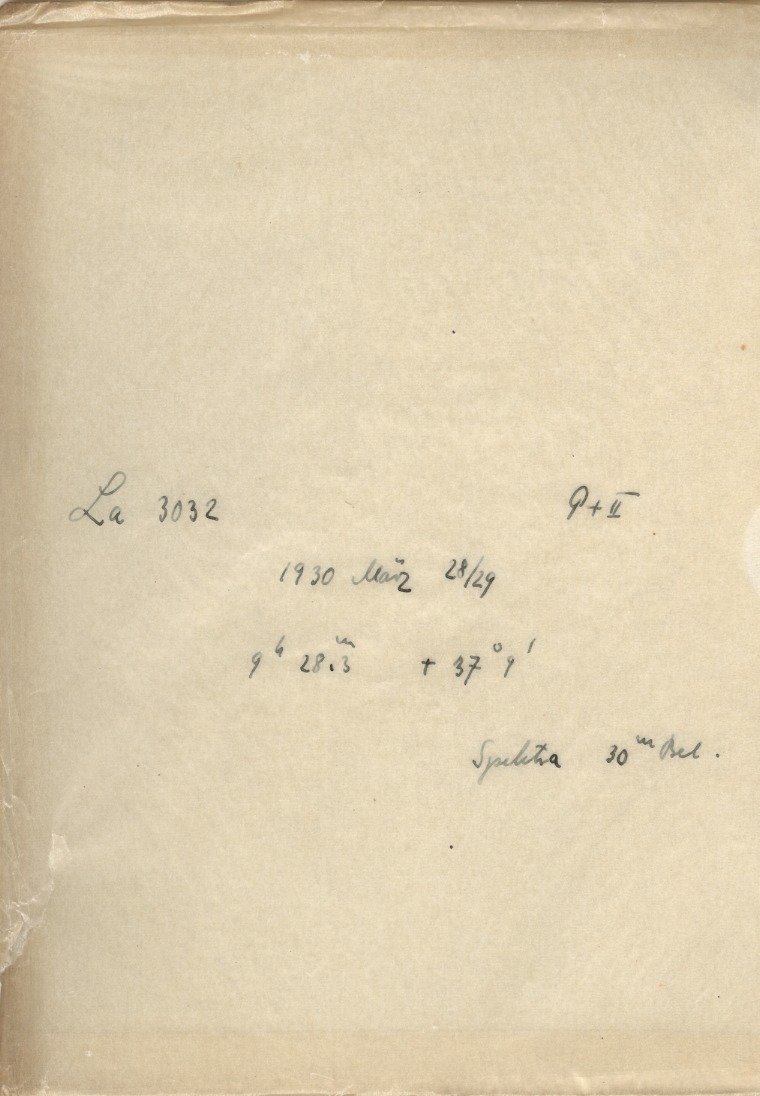 La 3032 P+II
1930 März 28/29
9ʰ 28.3ᵐ + 37° 9'
Spektra 30ᵐ Bel.